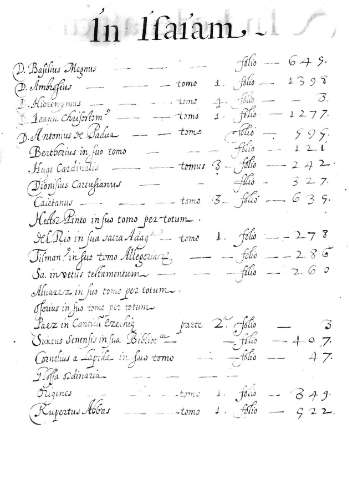 In Isaiam
D. Basilius Magnus folio 649.
D. Ambrosius tomo 1. folio 1398
D. Hieronymus tomo 4. folio 3.
D. Ioann Chrisostom⁹ tomo 1. folio 1277.
D. Antonius de Padua tomo folio 595.
Berthorius in suo tomo folio 121
Hugo Cardinalis tomus 3. folio 242.
Dionisius Cartusianus folio 327.
Caietanus tomo 3. folio 639.
Hector Pinto in suo tomo per totum.
del Rio in sua sacra Adag⁹ tomo 1. folio 278
Tilman⁹ in suo tomo Allegoriar folio 286
Sa. in vetus testamentum folio 260
Alvarez in suo tomo per totum.
Osorius in suo tomo per totum.
Paez in Ezechiel parte 2. folio 3
Sixtus Senensis in sua Biblioth folio 407.
Cornelius a Lapide in suo tomo folio 47.
Glossa ordinaria
Origenes tomo 1. folio 349.
Rupertus Abbas tomo 1. folio 922.